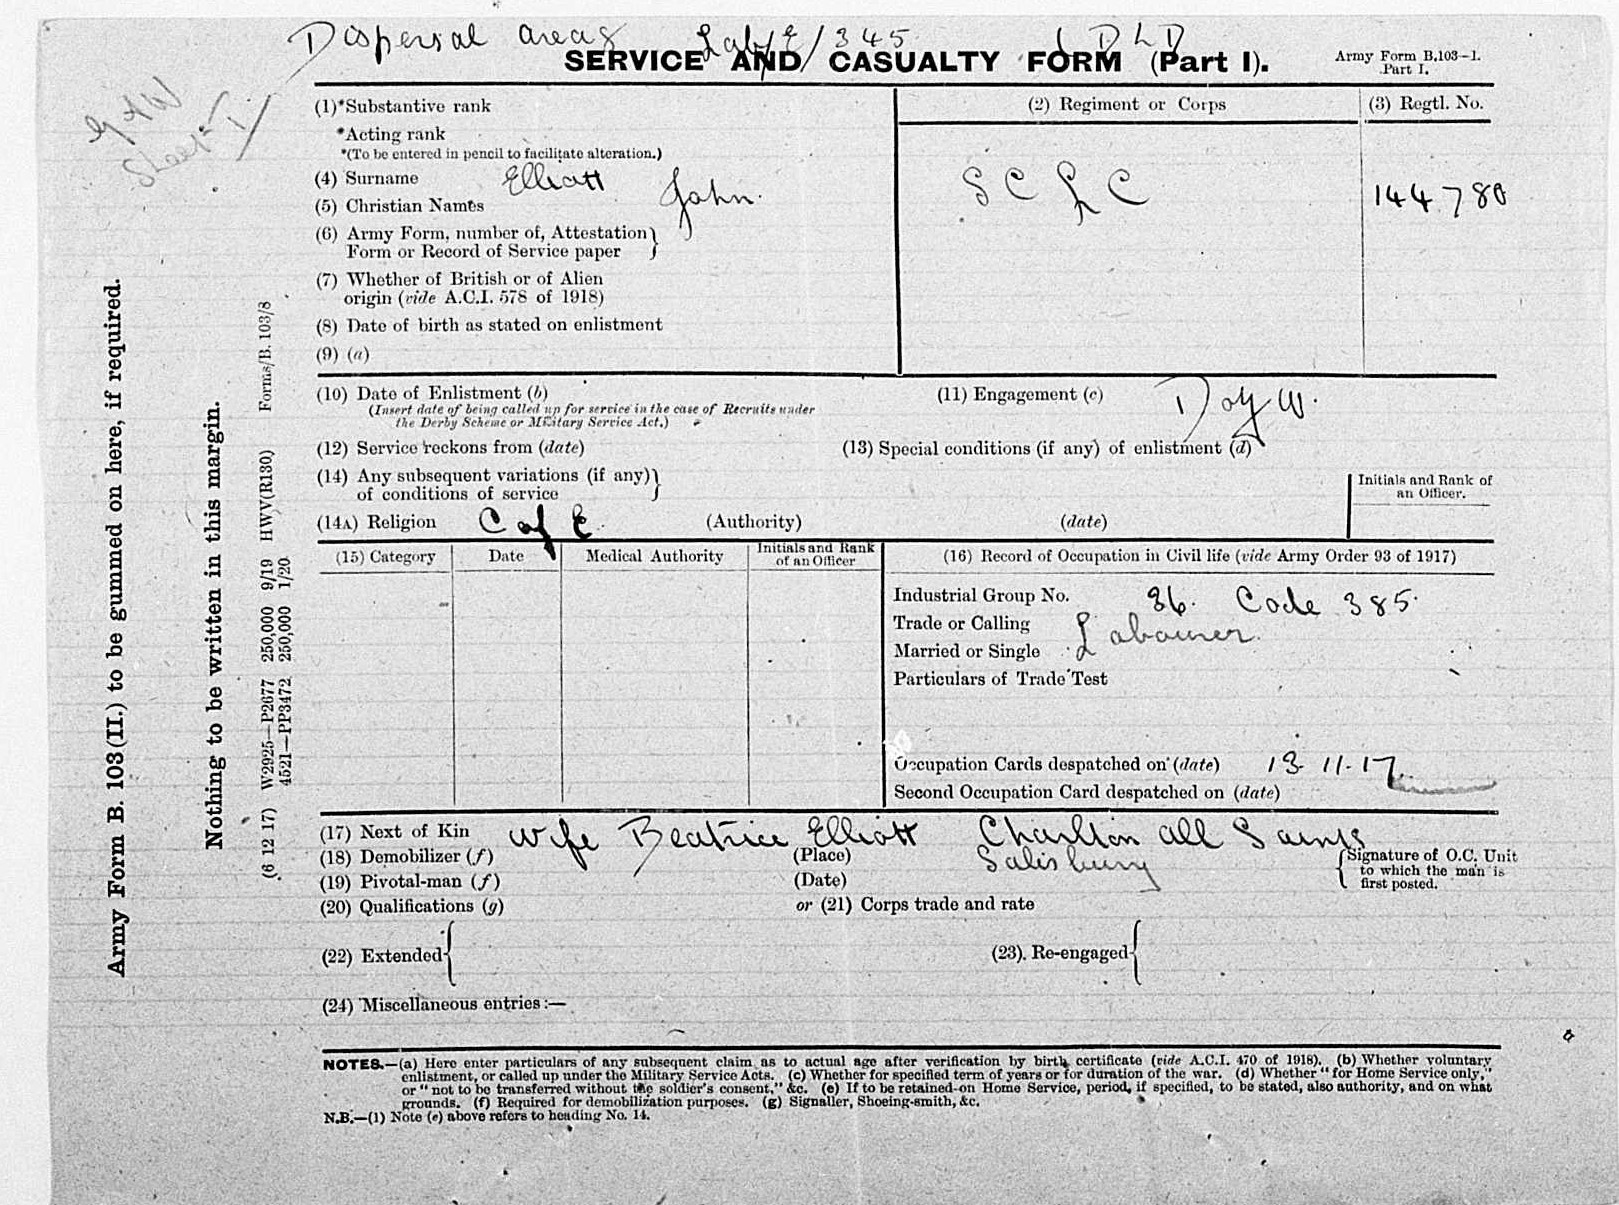 Dispersal area 8 Lab/E/345 1 D L D
SERVICE AND CASUALTY FORM (Part I).
Army Form B.103—1.
Part I.
(1)*Substantive rank
*Acting rank
*(To be entered in pencil to facilitate alteration.)
(2) Regiment or Corps
(3) Regtl. No.
(4) Surname Elliott
(5) Christian Names John.
S C L C
144780
(6) Army Form, number of, Attestation
Form or Record of Service paper
(7) Whether of British or of Alien
origin (vide A.C.I. 578 of 1918)
(8) Date of birth as stated on enlistment
(9) (a)
(10) Date of Enlistment (b)
(Insert date of being called up for service in the case of Recruits under
the Derby Scheme or Military Service Act.)
(11) Engagement (c) D of W.
(12) Service reckons from (date)
(13) Special conditions (if any) of enlistment (d)
(14) Any subsequent variations (if any)
of conditions of service
Initials and Rank of
an Officer.
(14A) Religion C of E. (Authority) (date)
(15) Category
Date
Medical Authority
Initials and Rank
of an Officer
(16) Record of Occupation in Civil life (vide Army Order 93 of 1917)
Industrial Group No. 36. Code 385.
Trade or Calling Labourer.
Married or Single
Particulars of Trade Test
Occupation Cards despatched on (date) 13-11-17
Second Occupation Card despatched on (date)
(17) Next of Kin wife Beatrice Elliott Charlton All Saints
(18) Demobilizer (f) (Place) Salisbury
(19) Pivotal-man (f) (Date)
Signature of O.C. Unit
to which the man is
first posted.
(20) Qualifications (g) or (21) Corps trade and rate
(22) Extended
(23). Re-engaged
(24) Miscellaneous entries:—
NOTES.—(a) Here enter particulars of any subsequent claim as to actual age after verification by birth certificate (vide A.C.I. 470 of 1918). (b) Whether voluntary
enlistment, or called up under the Military Service Acts. (c) Whether for specified term of years or for duration of the war. (d) Whether "for Home Service only,"
or "not to be transferred without the soldier's consent," &c. (e) If to be retained on Home Service, period, if specified, to be stated, also authority, and on what
grounds. (f) Required for demobilization purposes. (g) Signaller, Shoeing-smith, &c.
N.B.—(1) Note (e) above refers to heading No. 14.
Army Form B. 103(II.) to be gummed on here, if required.
Nothing to be written in this margin.
(6 12 17) W2925—P2677 250,000 9/19 HWV(R130) Forms/B. 103/8
4521—PP3472 250,000 1/20